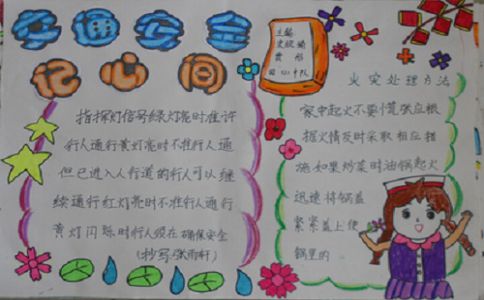 交通安全
记心间
主编
费彤
四(1)中队
火灾处理方法
指挥灯信号绿灯亮时准许
行人通行黄灯亮时不准行人通
但已进入人行道的行人可以继
续通行红灯亮时不准行人通行
黄灯闪烁时行人须在确保安全
(抄写:张雨轩)
家中起火不要慌张应根
据火情及时采取相应措
施如果炒菜时油锅起火
迅速将锅盖
紧紧盖上使
锅里的